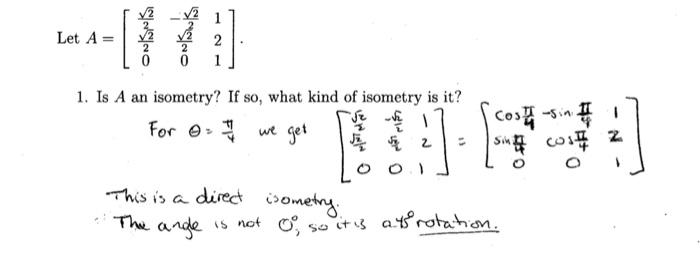 Let A = [ √2/2 -√2/2 1
√2/2 √2/2 2
0 0 1 ].
1. Is A an isometry? If so, what kind of isometry is it?
For θ = π/4 we get [ √2/2 -√2/2 1 ; √2/2 √2/2 2 ; 0 0 1 ] = [ cos π/4 -sin π/4 1 ; sin π/4 cos π/4 2 ; 0 0 1 ]
This is a direct isometry.
The angle is not 0°, so it is a 45° rotation.